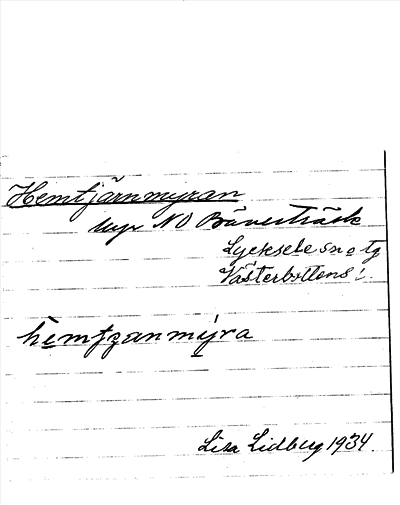 Hemtjärnmyran
Myr NO Bäverträsk
Lycksele sn o tg
Västerbottens l.
hemtzanmýra
Lisa Lidberg 1934.